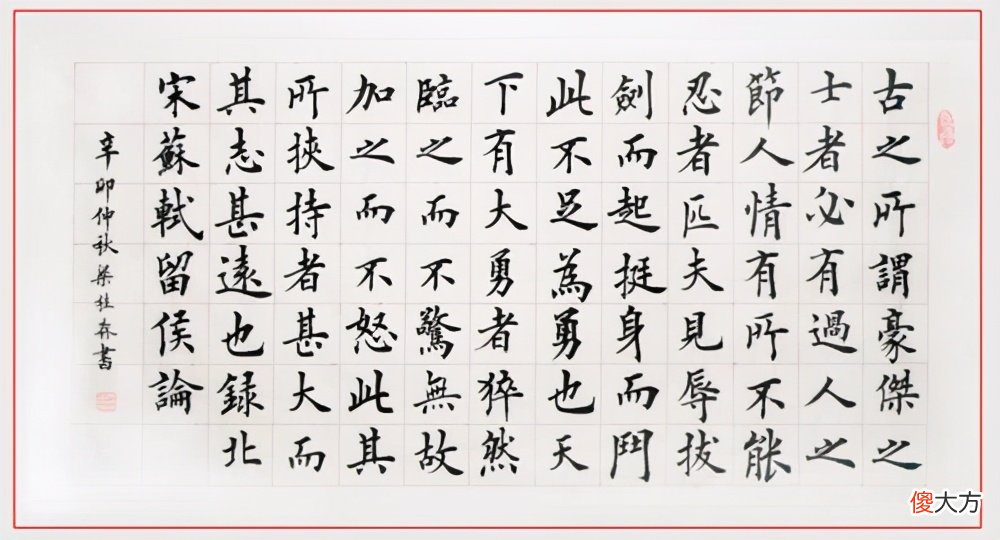 古之所謂豪傑之
士者必有過人之
節人情有所不能
忍者匹夫見辱拔
劍而起挺身而鬥
此不足為勇也天
下有大勇者猝然
臨之而不驚無故
加之而不怒此其
所挾持者甚大而
其志甚遠也録北
宋蘇軾留侯論
辛卯仲秋梁桂森書
傻大方